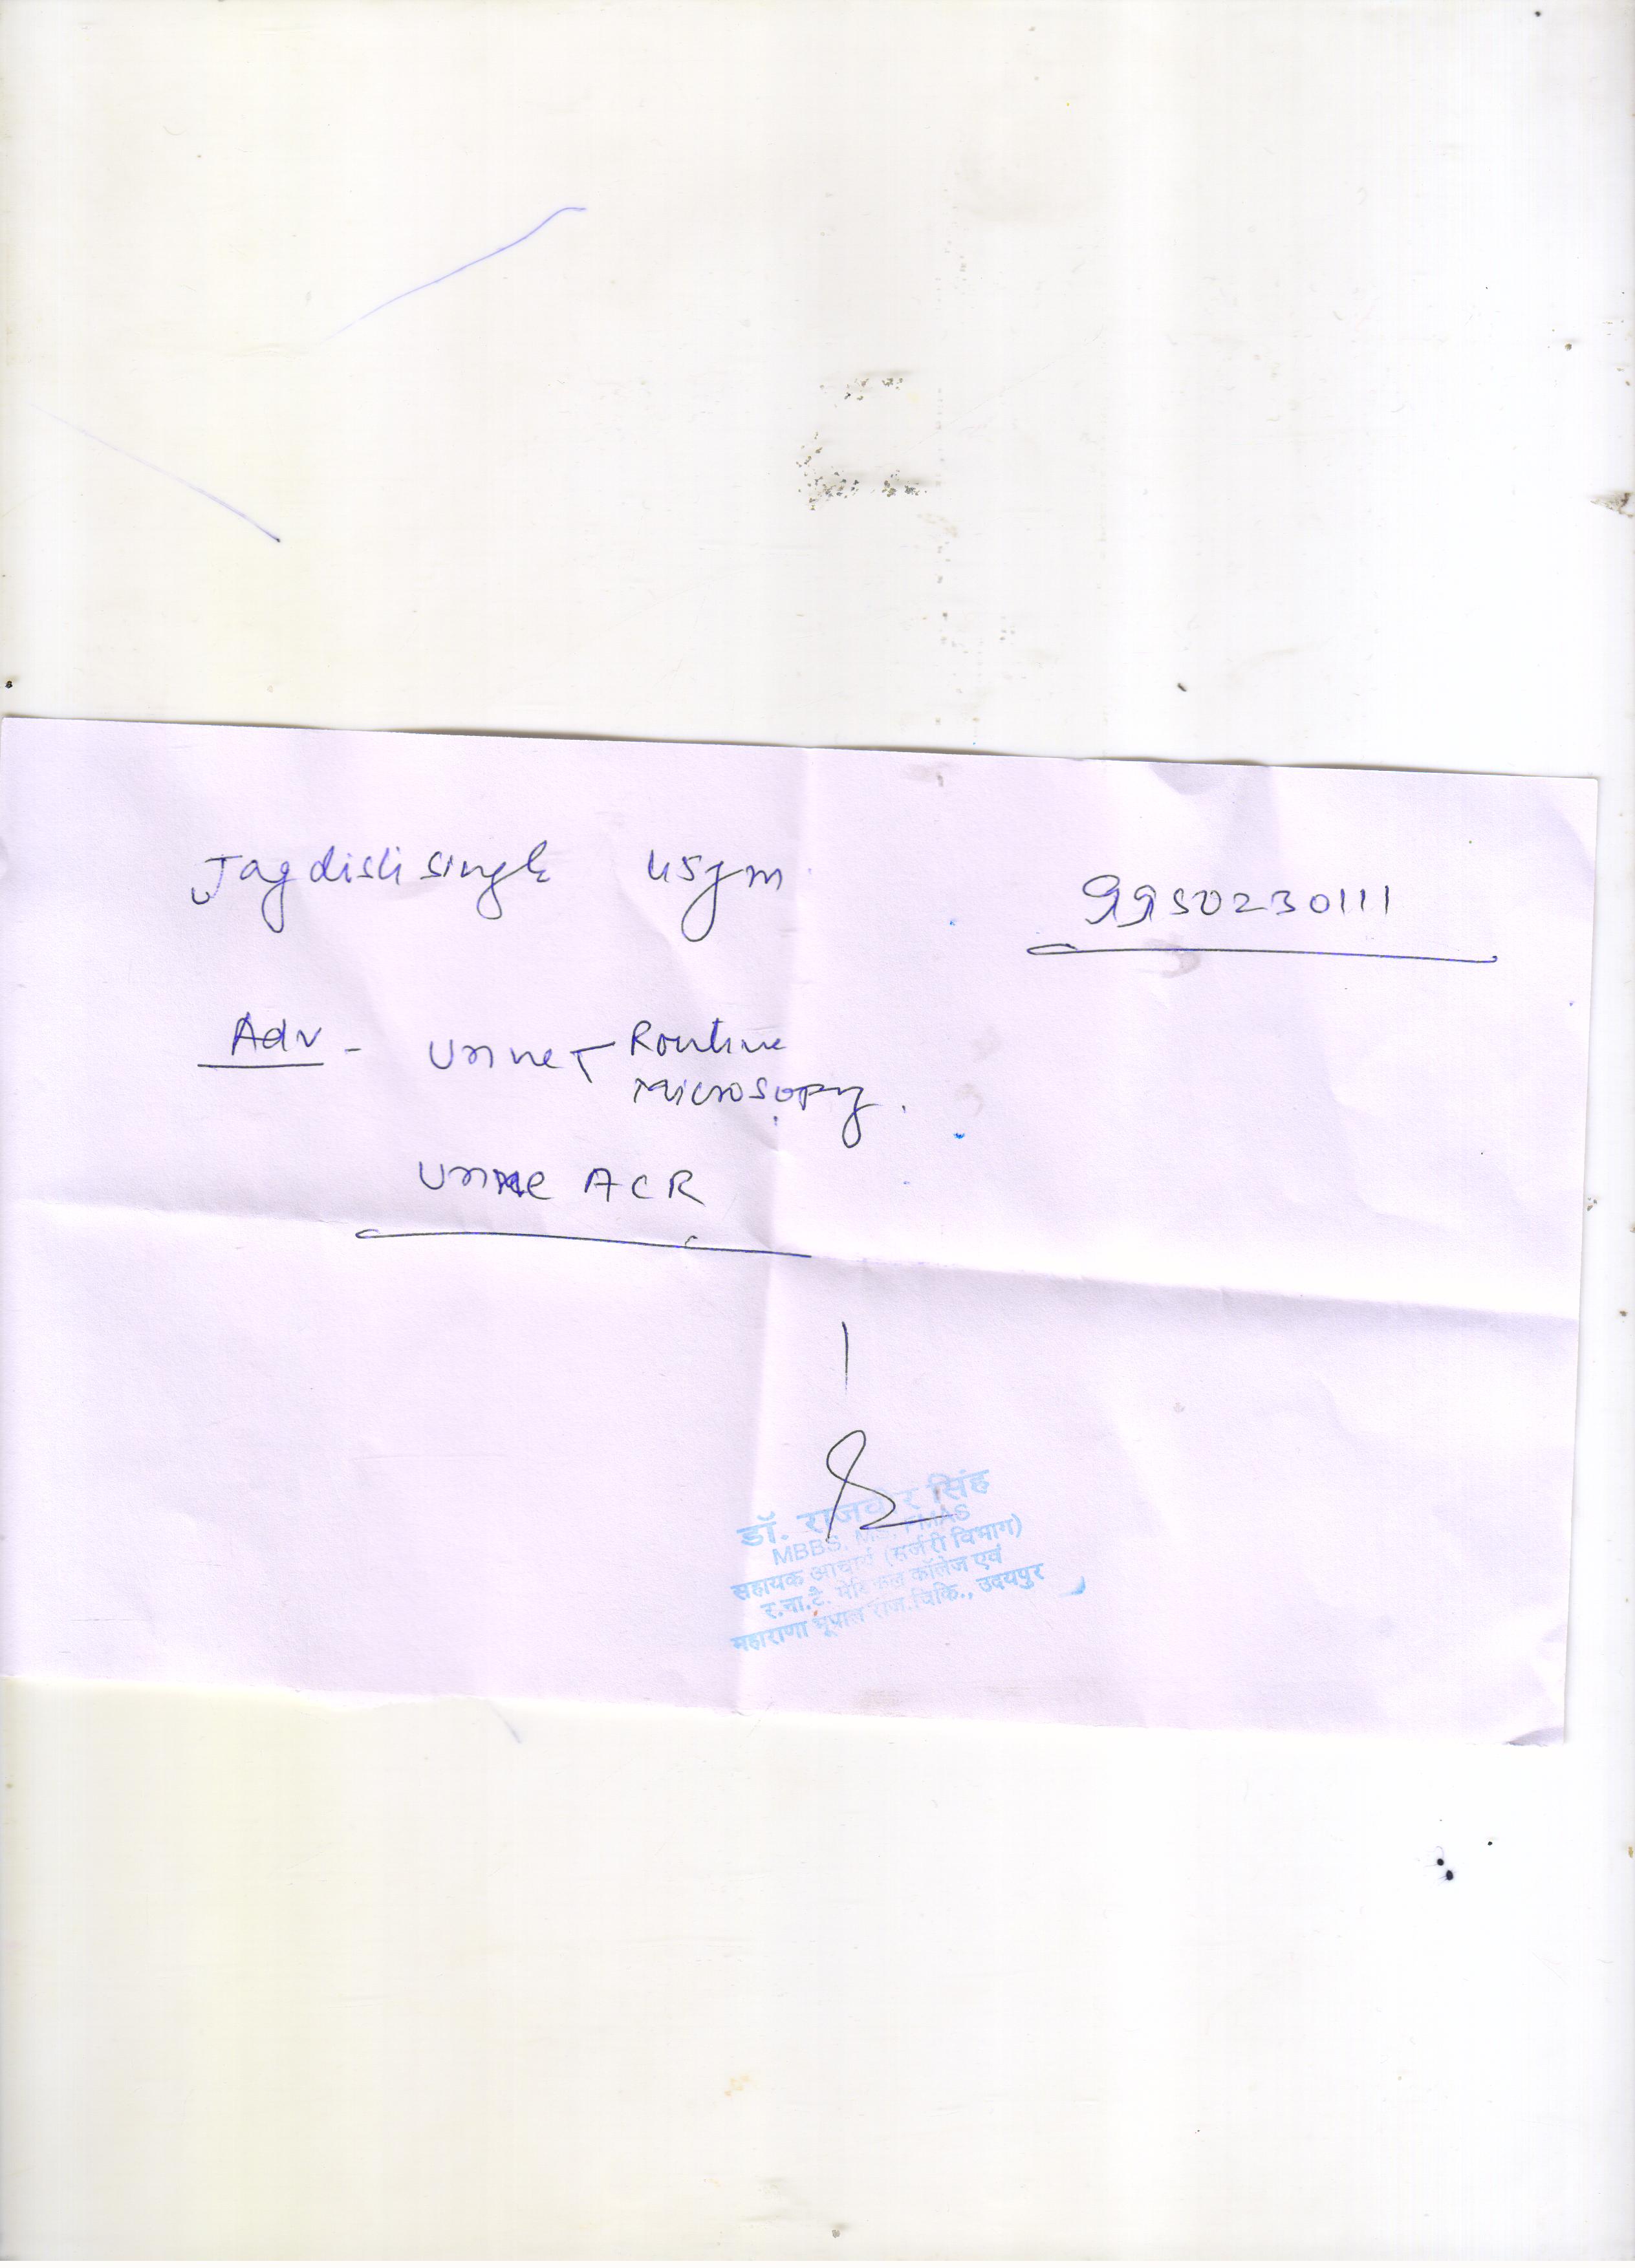 Jagdish singh 45ym 9950230111
Adv - Urine Routine
Microsopy.
Urine ACR
डॉ. राजवीर सिंह
MBBS, MS, FMAS
सहायक आचार्य (सर्जरी विभाग)
र.ना.टै. मेडिकल कॉलेज एवं
महाराणा भूपाल राज.चिकि., उदयपुर